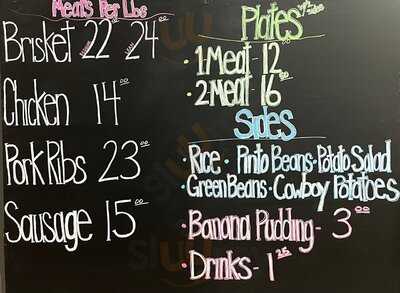 Meats Per Lbs
Brisket 22⁰⁰ 24⁰⁰
Chicken 14⁰⁰
Pork Ribs 23⁰⁰
Sausage 15⁰⁰
Plates
• 1 Meat - 12⁵⁰
• 2 Meat 16⁵⁰
Sides
• Rice • Pinto Beans • Potato Salad
• Green Beans • Cowboy Potatoes
• Banana Pudding - 3⁰⁰
• Drinks - 1²⁵